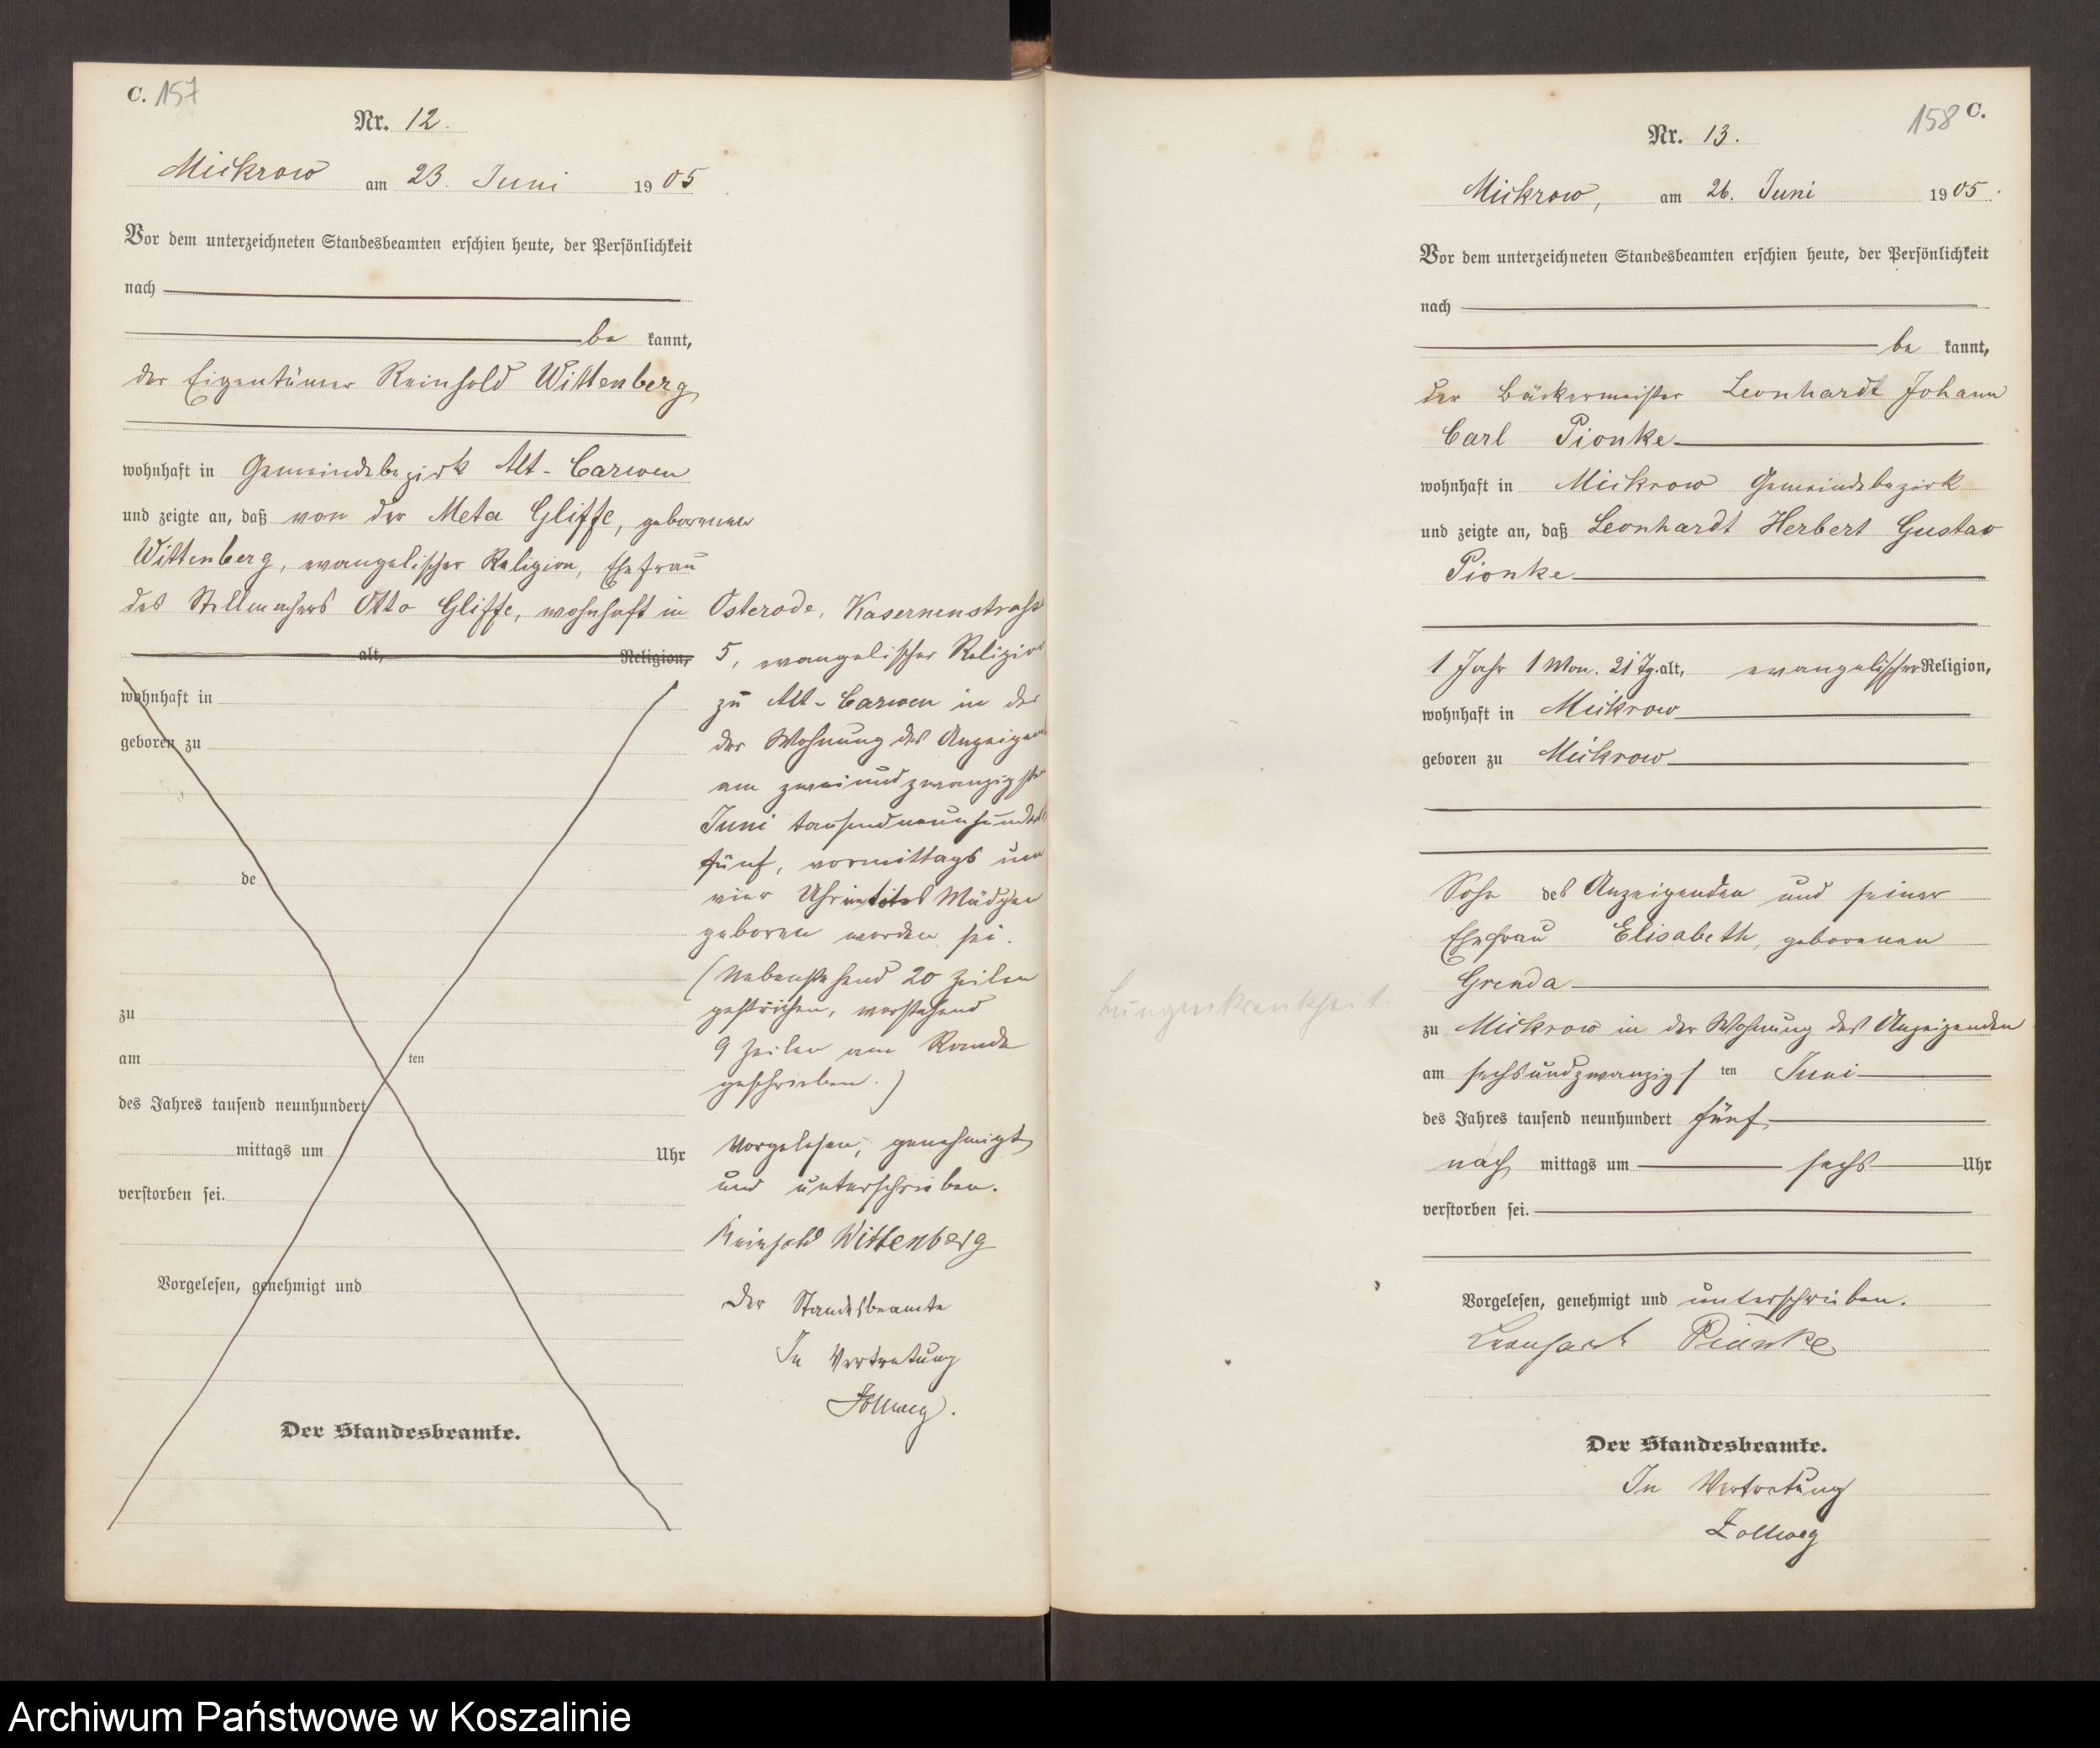 C. 157
Nr. 12.
Mickrow am 23. Juni 1905
Vor dem unterzeichneten Standesbeamten erschien heute, der Persönlichkeit
nach
be kannt,
der Eigentümer Reinhold Wittenberg
wohnhaft in Gemeindebezirk Alt-Carwen
und zeigte an, daß von der Meta Gliffe, geborenen
Wittenberg, evangelischer Religion, Ehefrau
des Stellmachers Otto Gliffe, wohnhaft in
alt, Religion,
wohnhaft in
geboren zu
de
zu
am ten
des Jahres tausend neunhundert
mittags um Uhr
verstorben sei.
Vorgelesen, genehmigt und
Der Standesbeamte.
Osterode, Kasernenstraße
5, evangelischer Religion
zu Alt-Carwen in der
der Wohnung des Anzeigenden
am zweiundzwanzigsten
Juni tausendneunhundert
fünf, vormittags um
vier Uhr ein totes Mädchen
geboren worden sei.
(Nebenstehend 20 Zeilen
gestrichen, vorstehend
9 Zeilen am Rande
geschrieben.)
Vorgelesen, genehmigt
und unterschrieben.
Reinhold Wittenberg
Der Standesbeamte
In Vertretung
Zollweg.
158 C.
Nr. 13.
Mickrow, am 26. Juni 1905.
Vor dem unterzeichneten Standesbeamten erschien heute, der Persönlichkeit
nach
be kannt,
der Bäckermeister Leonhardt Johann
Carl Pionke
wohnhaft in Mickrow Gemeindebezirk
und zeigte an, daß Leonhardt Herbert Gustav
Pionke
1 Jahr 1 Mon. 21 Tg. alt, evangelischer Religion,
wohnhaft in Mickrow
geboren zu Mickrow
Sohn des Anzeigenden und seiner
Ehefrau Elisabeth, geborenen
Grenda
Lungenkrankheit.
zu Mickrow in der Wohnung des Anzeigenden
am sechsundzwanzigs ten Juni
des Jahres tausend neunhundert fünf
nach mittags um sechs Uhr
verstorben sei.
Vorgelesen, genehmigt und unterschrieben.
Leonhardt Pionke
Der Standesbeamte.
In Vertretung
Zollweg
Archiwum Państwowe w Koszalinie